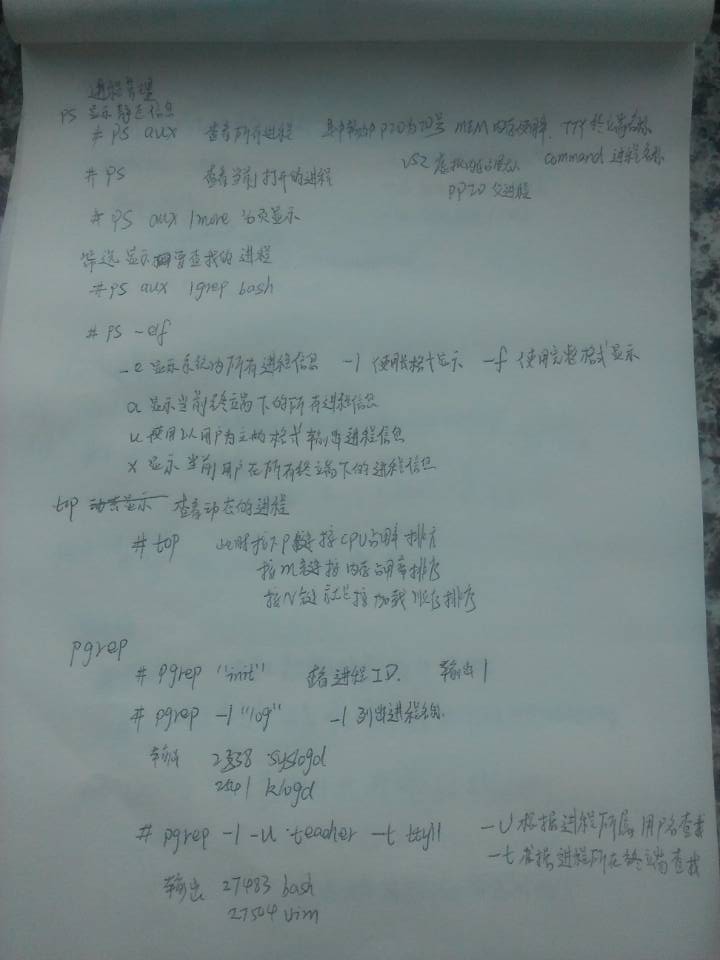 进程管理
ps 显示静态信息
# ps aux 查看所有进程 其中输出PID为ID号 MEM 内存使用率 TTY 终端名称
VSZ 虚拟内存占用大小 command 进程名称
PPID 父进程
# ps 查看当前打开的进程
# ps aux |more 分页显示
筛选显示需要查找的进程
# ps aux |grep bash
# ps -elf
-e 显示系统内所有进程信息 -l 使用长格式显示 -f 使用完整格式显示
a 显示当前终端下的所有进程信息
u 使用以用户为主的格式输出进程信息
x 显示当前用户在所有终端下的进程信息
top 动态显示 查看动态的进程
# top 此时按下P键 按CPU占用率排序
按M键按内存占用率排序
按N键就是按加载顺序排序
pgrep
# pgrep "init" 查看进程ID. 输出 1
# pgrep -l "log" -l 列出进程名
输出 2538 syslogd
2541 klogd
# pgrep -l -u teacher -t tty11 -U 根据进程所属用户名查找
-t 根据进程所在终端查找
输出 27483 bash
27504 vim